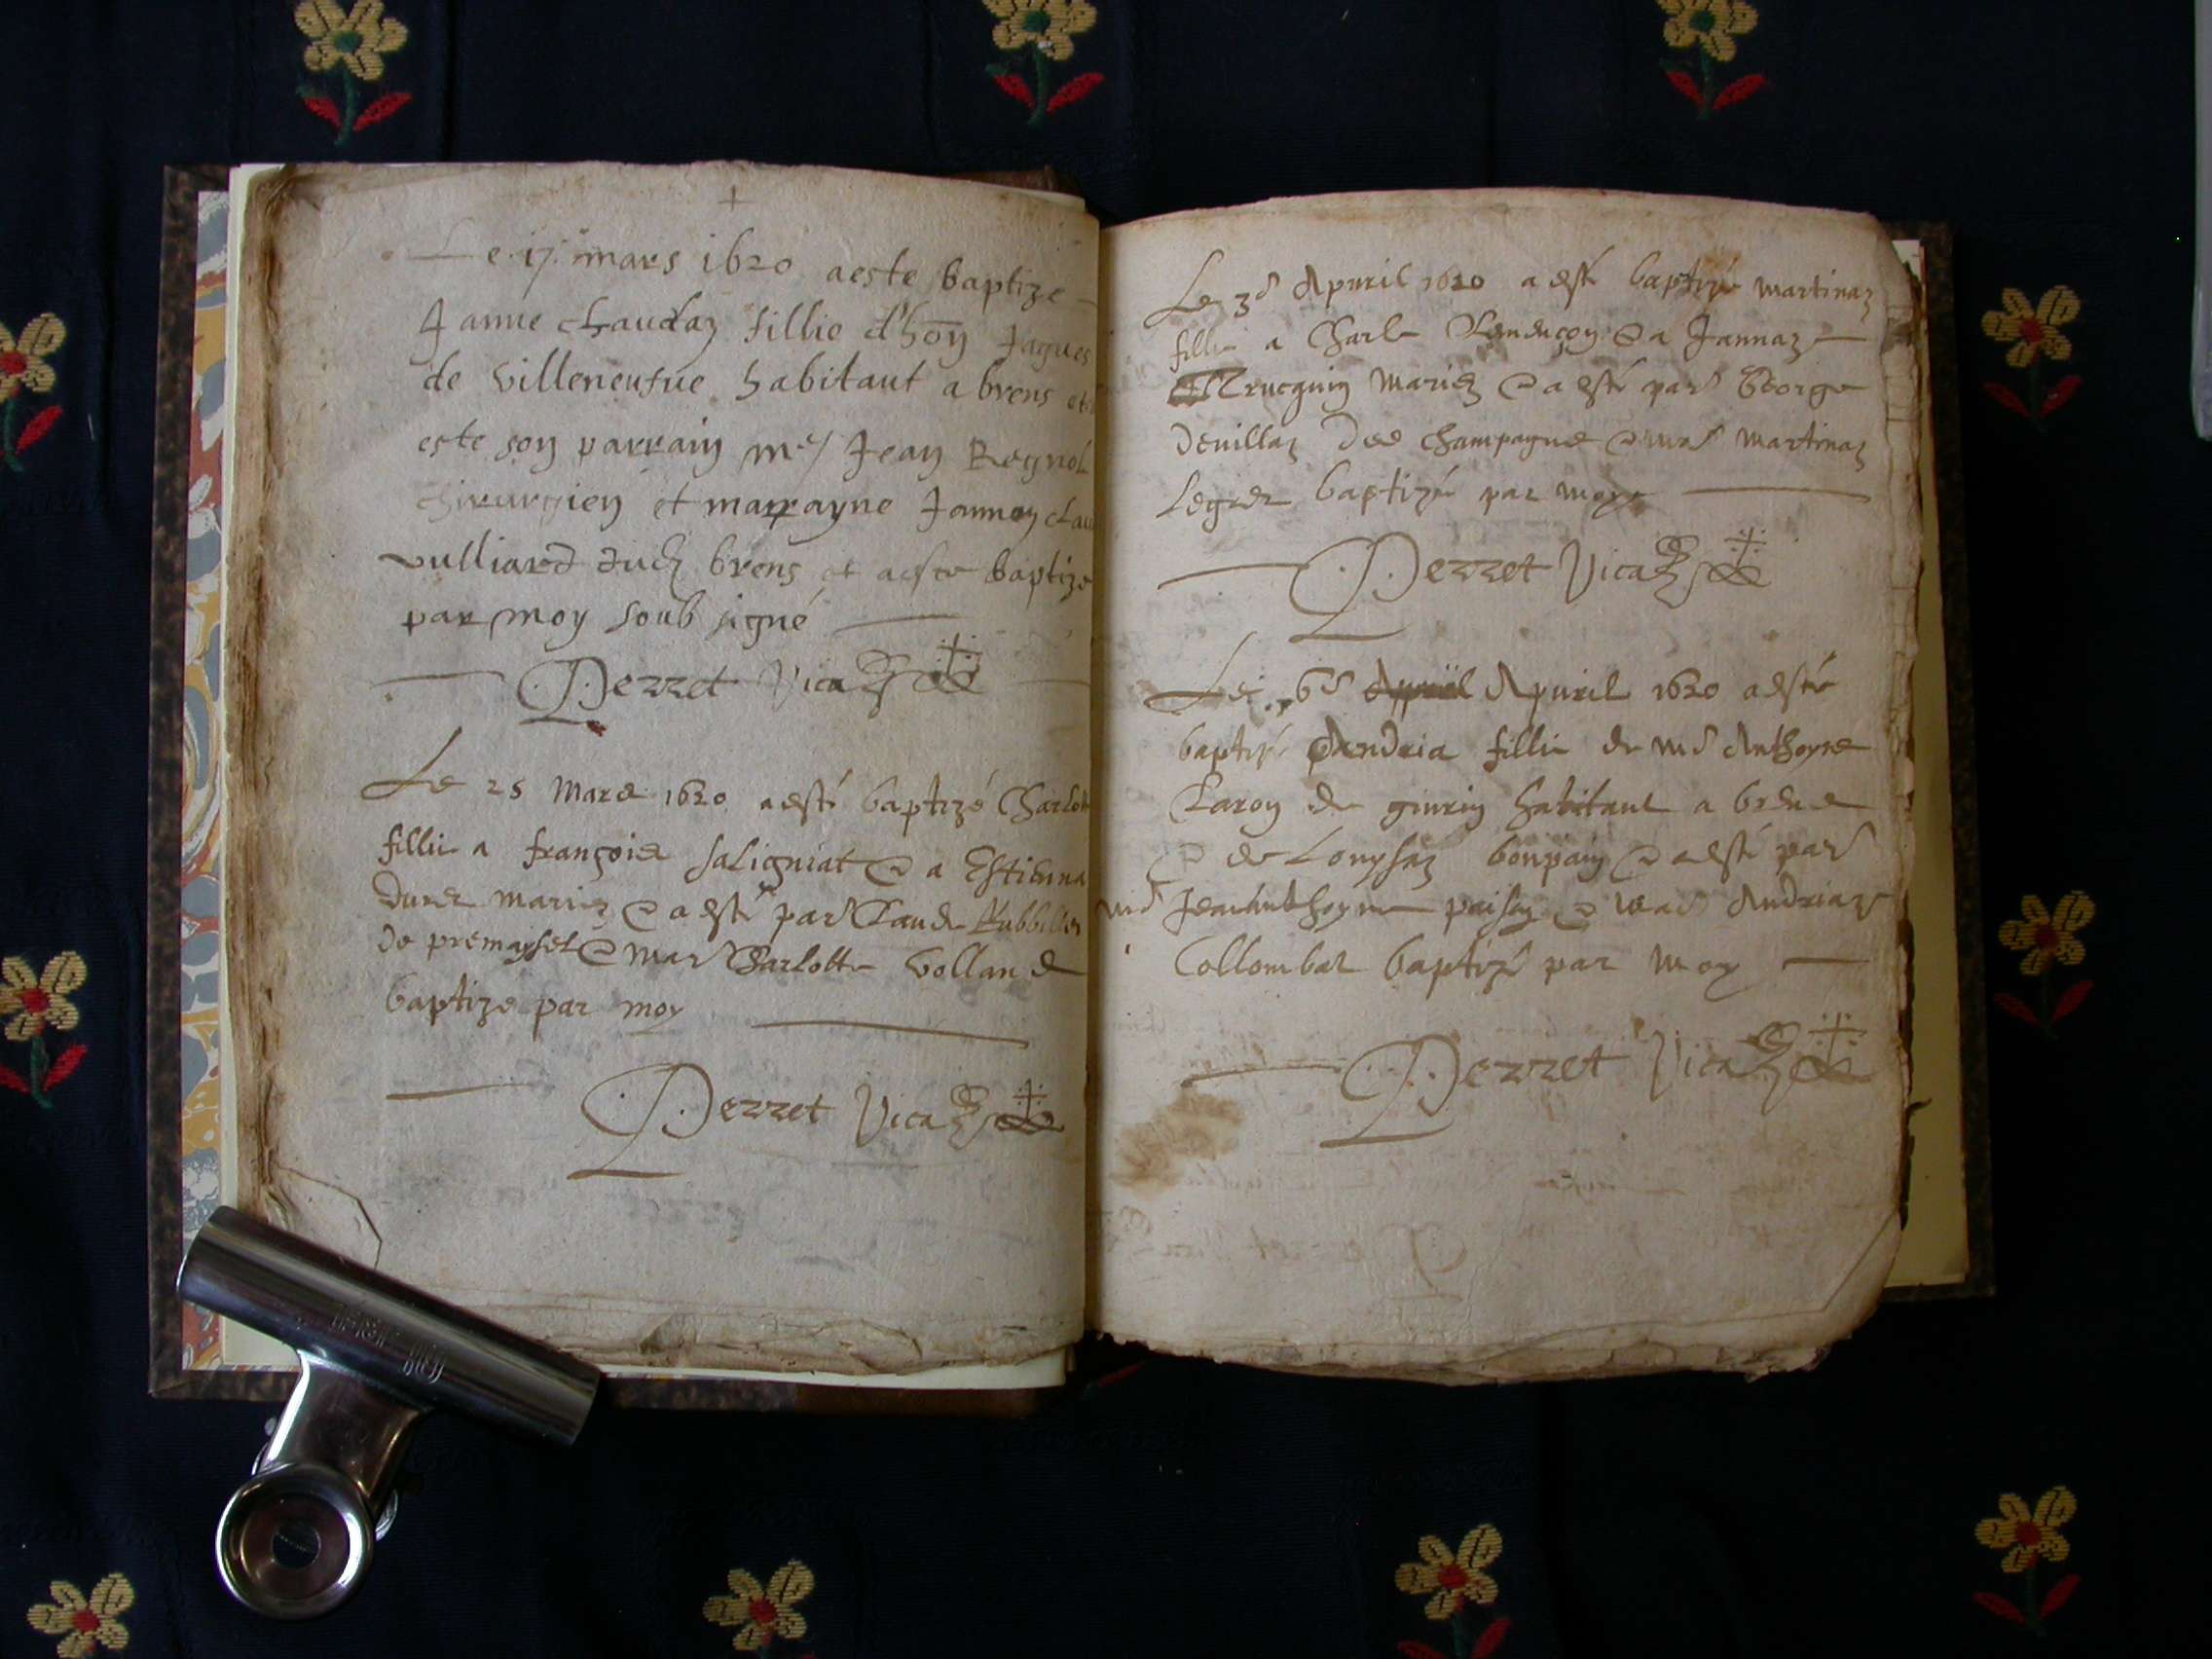 Le 17 mars 1620 aeste baptize
Janne Chaudaz fillie d'hon Jaques
de Villeneufue habitant a brens et
este son parrain me Jean Regnol
chirurgien et marrayne Janne
vulliard dud brens et aeste baptize
par moy soub signé
Perret Vicaре
Le 25 Mars 1620 a esté baptizé Charlott
fillie a françois saligniat & a Estienna
Duret mariez & a esté par Claude Rubbillier
de premayset & mar Charlotte Volland
baptize par moy
Perret Vica
Le 3e Apuril 1620 a esté baptizé martinaz
fillie a Charle & a Jannaz
Trucquin Mariez & a esté par George
Deuillaz Des Champagne & mar martinaz
Legier baptizé par moy
Perret Vica
Le 6e Apuril 1620 a esté
baptizé Andria fillie de md Anthoyne
Caron de giurin habitant a brens
& de Louysaz bonpain & a esté par
md Jeananthoyne & mar Andriaz
Collombat baptizé par moy
Perret Vica